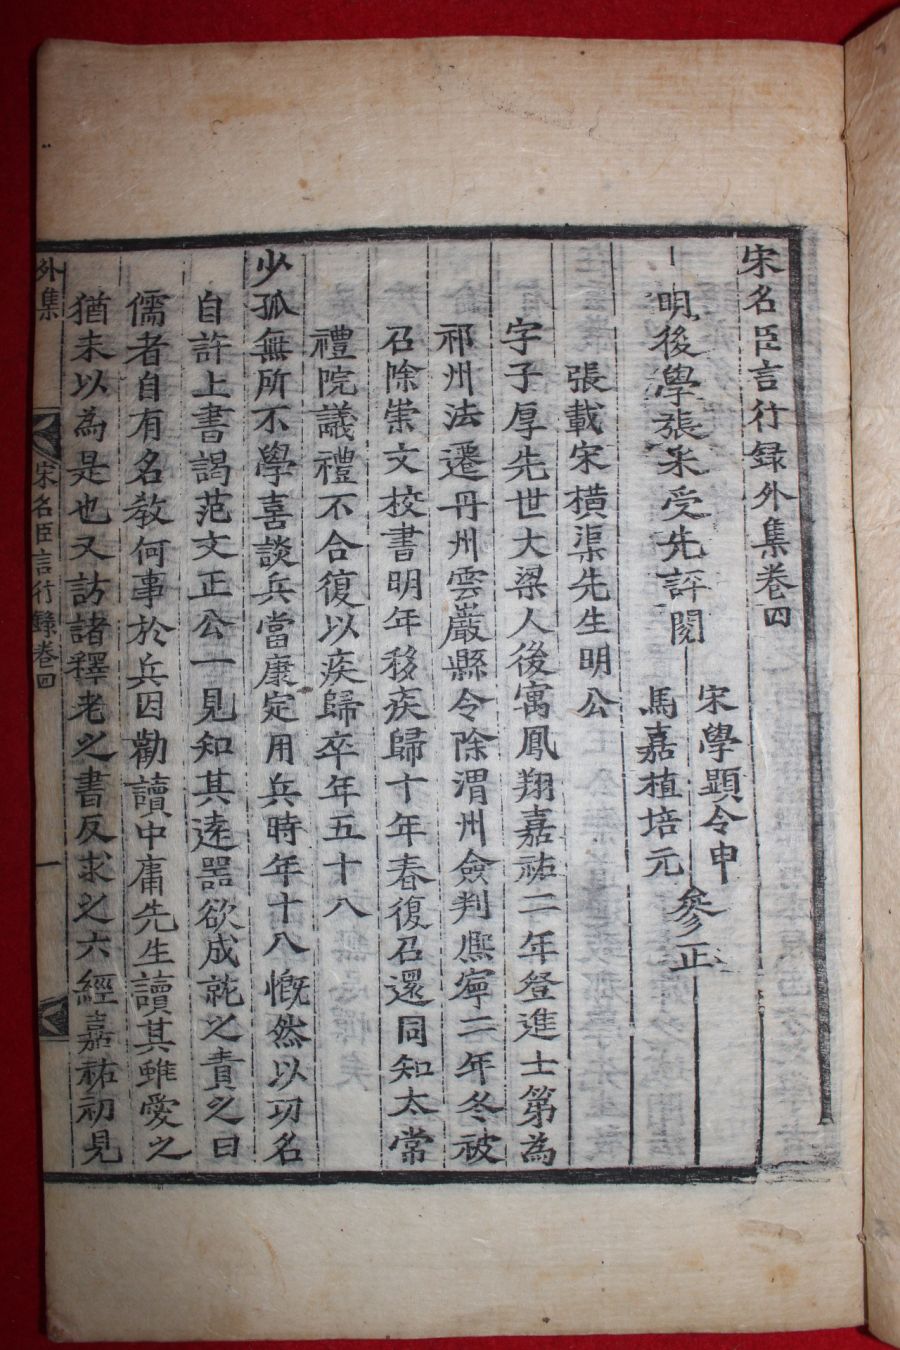 宋名臣言行録外集卷四
明後學張采受先評閱
宋學顯令申
馬嘉植培元
參正
張載宋橫渠先生明公
字子厚先世大梁人後寓鳳翔嘉祐二年登進士第為
祁州法遷丹州雲巖縣令除渭州僉判熈寧二年冬被
召除崇文校書明年移疾歸十年春復召還同知太常
禮院議禮不合復以疾歸卒年五十八
少孤無所不學喜談兵當康定用兵時年十八慨然以功名
自許上書謁范文正公一見知其遠器欲成就之責之曰
儒者自有名教何事於兵因勸讀中庸先生讀其雖愛之
猶未以為是也又訪諸釋老之書反求之六經嘉祐初見
外集
宋名臣言行錄卷四
一